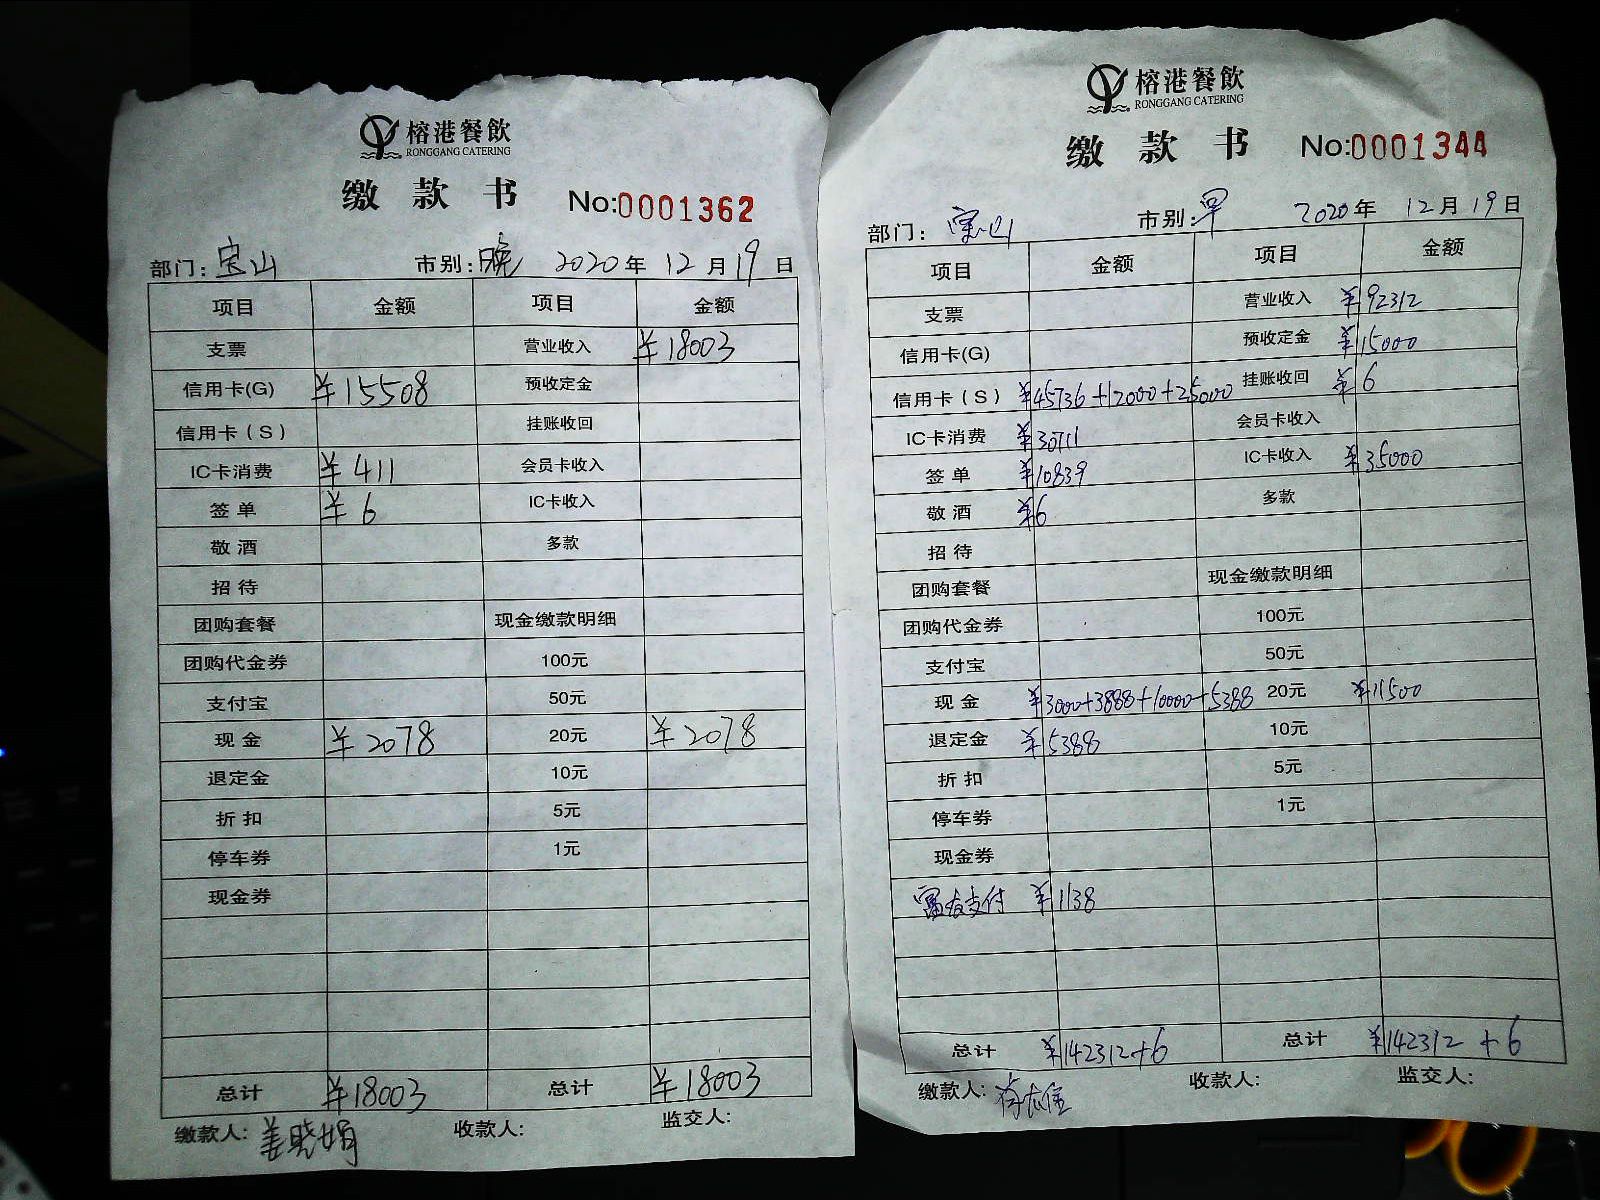 榕港餐飲
RONGGANG CATERING
缴款书 No:0001362
部门: 宝山 市别: 晚 2020年 12月 19日
项目 金额 项目 金额
支票 营业收入 ¥18003
信用卡(G) ¥15508 预收定金
信用卡(S) 挂账收回
IC卡消费 ¥411 会员卡收入
签单 ¥6 IC卡收入
敬酒 多款
招待
团购套餐 现金缴款明细
团购代金券 100元
支付宝 50元
现金 ¥2078 20元 ¥2078
退定金 10元
折扣 5元
停车券 1元
现金券
总计 ¥18003 总计 ¥18003
缴款人: 姜晓娟 收款人: 监交人:
榕港餐飲
RONGGANG CATERING
缴款书 No:0001344
部门: 宝山 市别: 早 2020年 12月 19日
项目 金额 项目 金额
支票 营业收入 ¥92312
信用卡(G) 预收定金 ¥15000
信用卡(S) ¥45736+12000+25000 挂账收回 ¥6
IC卡消费 ¥30711 会员卡收入
签单 ¥10839 IC卡收入 ¥35000
敬酒 ¥6 多款
招待
团购套餐 现金缴款明细
团购代金券 100元
支付宝 50元
现金 ¥3000+3888+10000+5388 20元 ¥11500
退定金 ¥5388 10元
折扣 5元
停车券 1元
现金券
富友支付 ¥1138
总计 ¥142312+6 总计 ¥142312+6
缴款人: 收款人: 监交人: